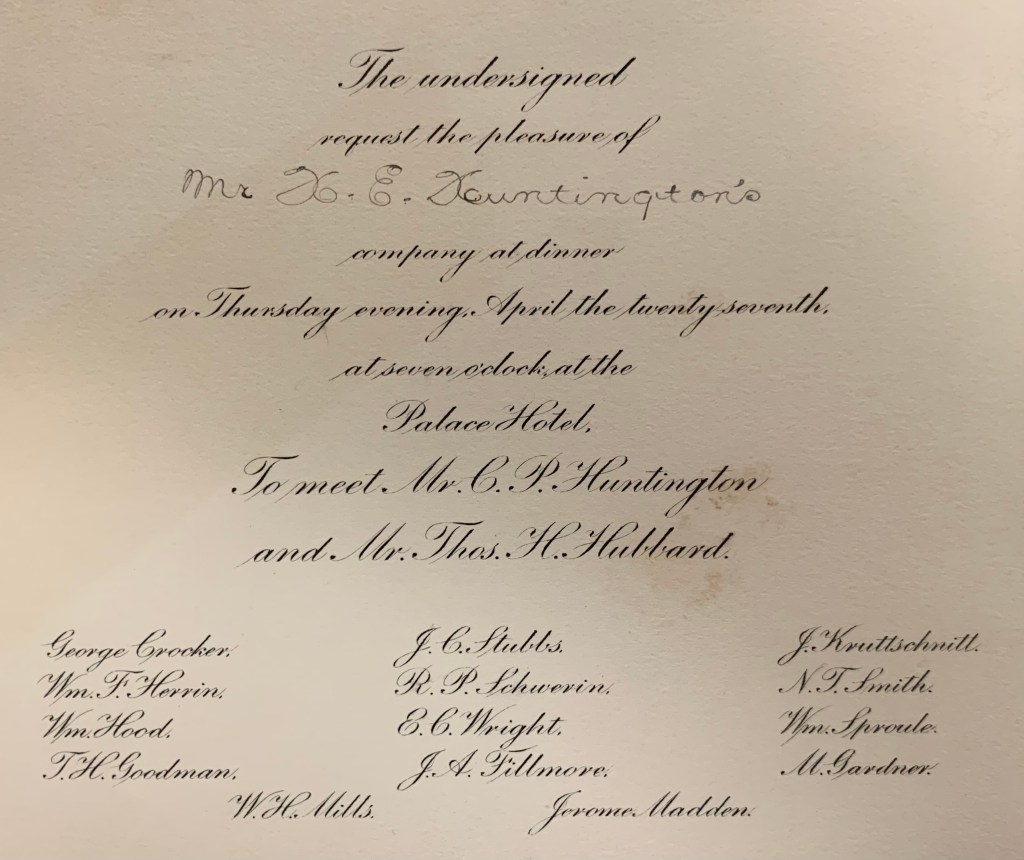 The undersigned
request the pleasure of
Mr H. E. Huntington's
company at dinner
on Thursday evening, April the twenty seventh,
at seven o'clock, at the
Palace Hotel,
To meet Mr. C. P. Huntington
and Mr. Thos. H. Hubbard.
George Crocker, J. C. Stubbs, J. Kruttschnitt,
Wm. F. Herrin, R. P. Schwerin, N. T. Smith,
Wm. Hood, E. C. Wright, Wm. Sproule,
T. H. Goodman, J. A. Fillmore, M. Gardner,
W. H. Mills, Jerome Madden.